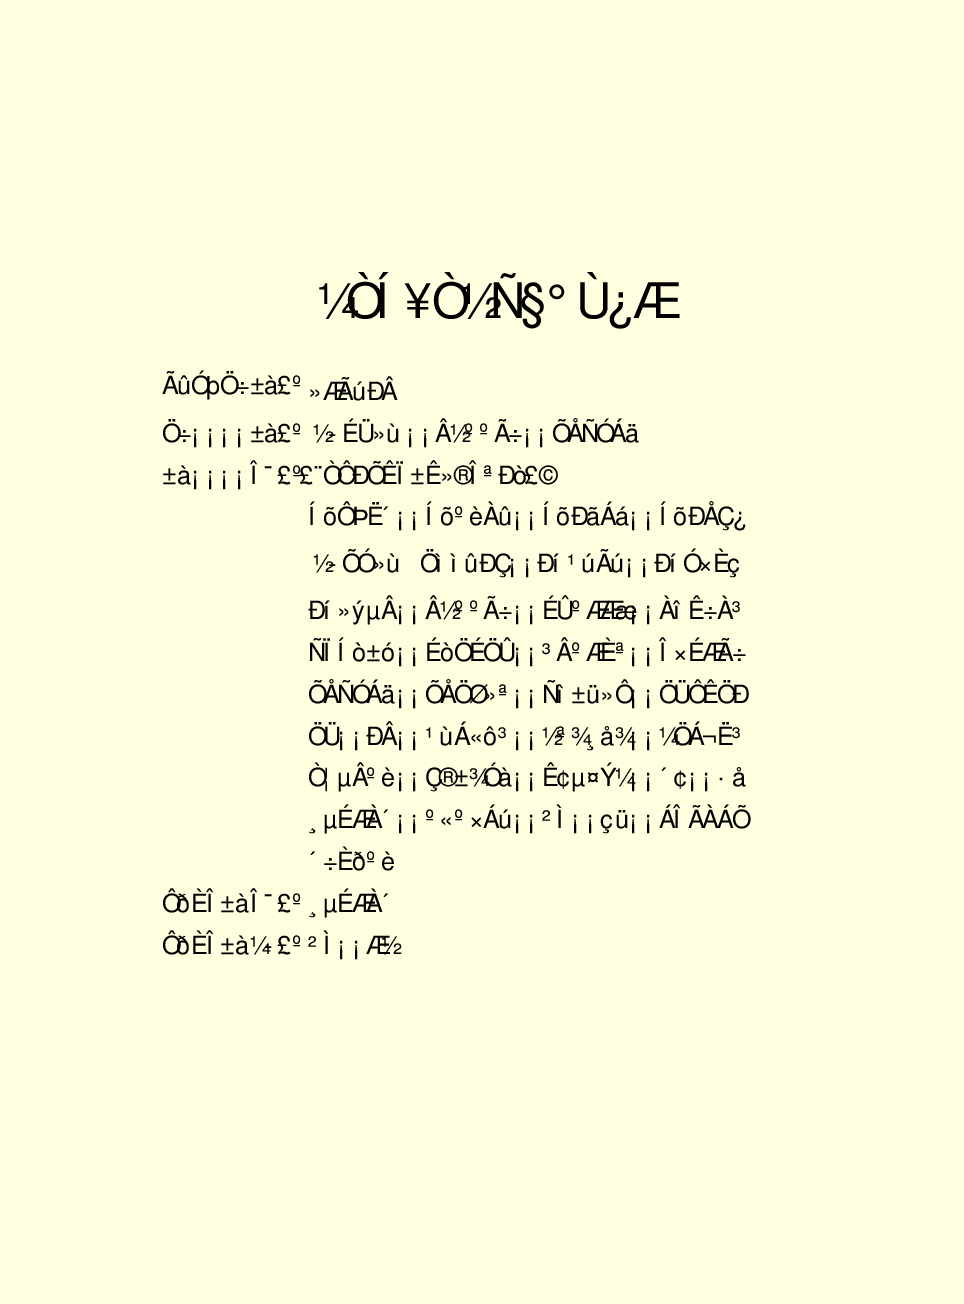 ¼ÒÍ¥Ò½Ñ§°Ù¿Æ
ÃûÓþÖ÷±à£º»ÆÃúÐÂ
Ö÷¡¡¡¡±à£º½­ÉÜ»ù¡¡Â½ººÃ÷¡¡ÕÅÑÓÁä
±à¡¡¡¡Î¯£º£¨ÒÔÐÕÊÏ±Ê»®ÎªÐò£©
ÍõÔÞË´¡¡ÍõºèÀû¡¡ÍõÐãÁá¡¡ÍõÐÅÇ¿
½­ÕÓ»ù ÖììûÐÇ¡¡Ðí¹úÃú¡¡ÐíÓ×Èç
Ðí»ýµÂ¡¡Â½ººÃ÷¡¡ÉÛºÆÆæ¡¡ÀîÊ÷À³
ÑÏÍò±ó¡¡ÉòÖÉÖÛ¡¡³ÂºÆÈª¡¡Î×ÉÆÃ÷
ÕÅÑÓÁä¡¡ÕÅÖØ»ª¡¡Ñî±ü»Ô¡¡ÖÜÔÊÖÐ
ÖÜ¡¡ÐÂ¡¡¹ùÁ«ô³¡¡½ª¾¸å¾¡¡¼ÖÁ¬Ë³
Ò¦µÂºè¡¡Ç®±¾Óà¡¡Ê¢µ¤Ý¼¡¡´¢¡¡·å
¸µÉÆÀ´¡¡º«º×Áú¡¡²Ì¡¡çü¡¡ÁÎÃÀÁÕ
´÷Èðºè
ÔðÈÎ±àÎ¯£º¸µÉÆÀ´
ÔðÈÎ±à¼­£º²Ì¡¡Æ½